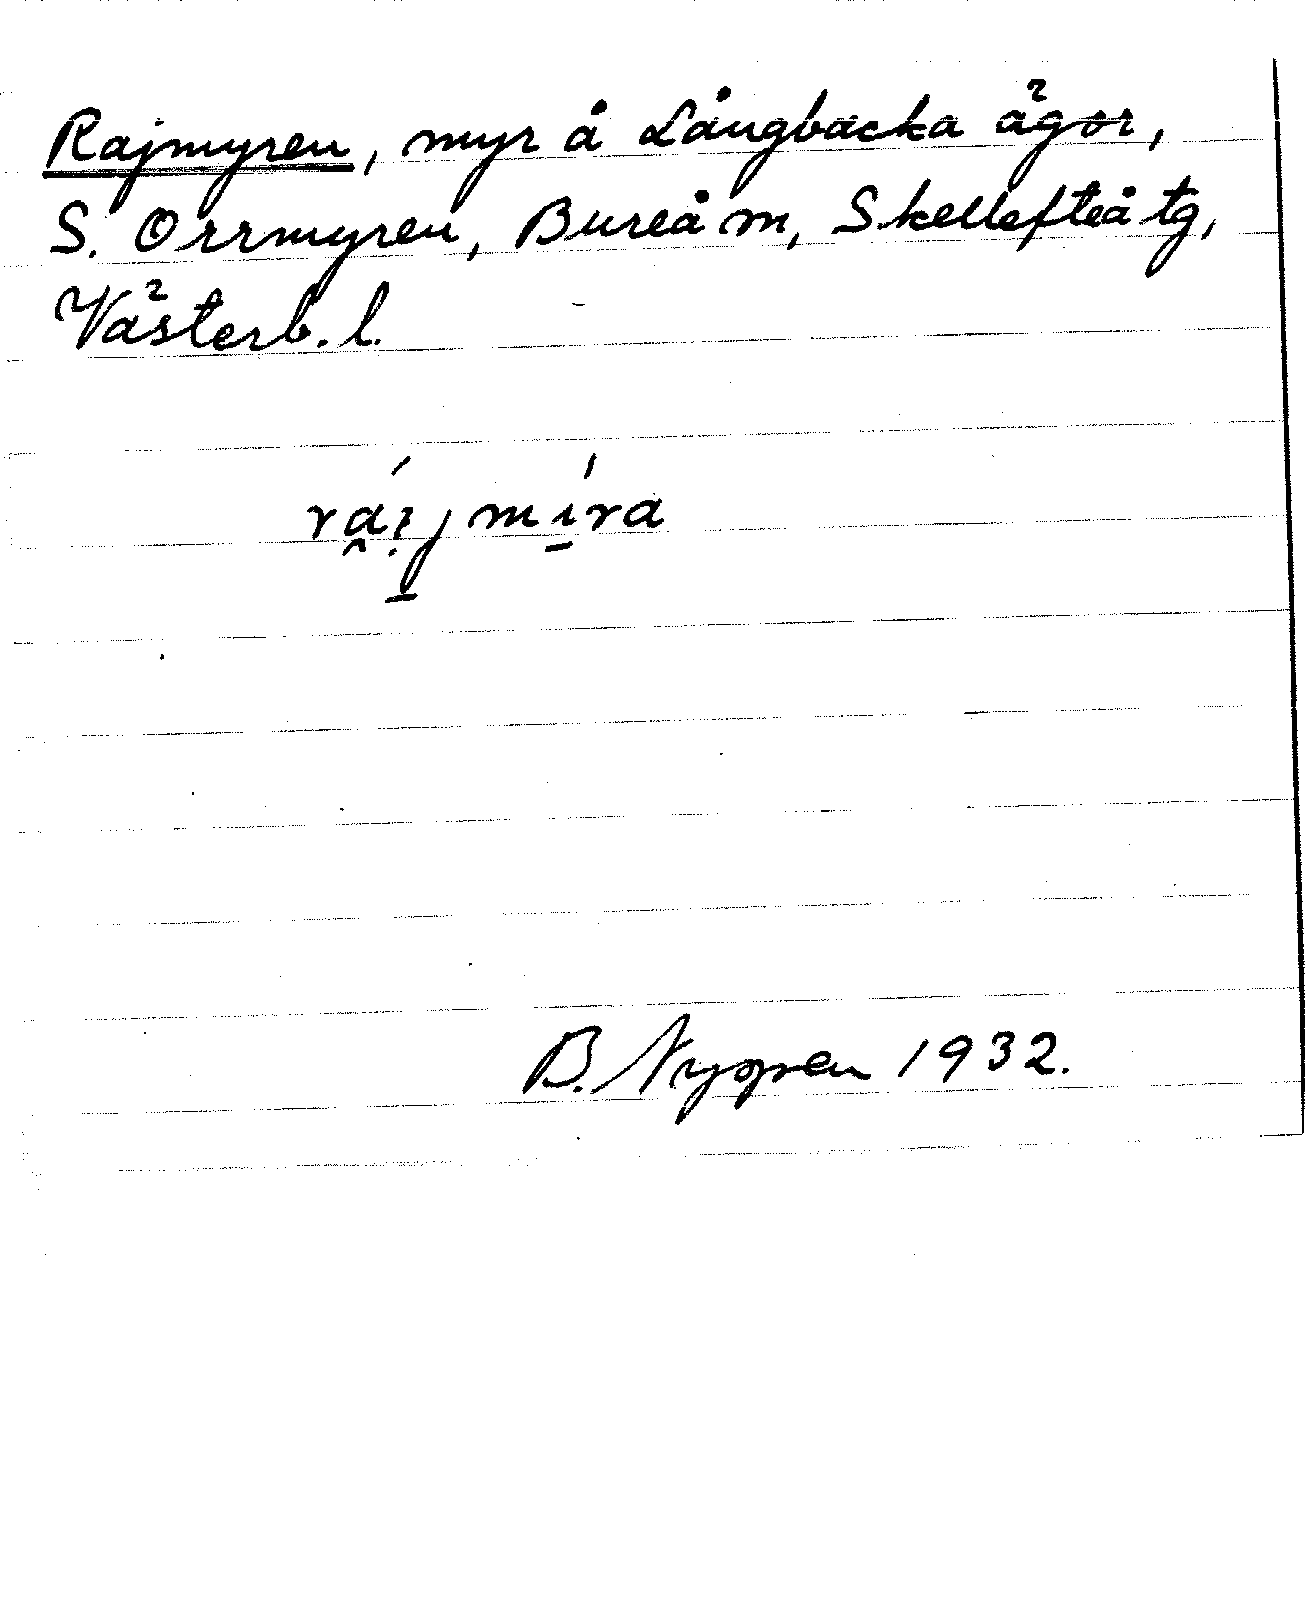 Rajmyren, myr å Långbacka ägor,
S. Orrmyren, Bureå m, Skellefteå tg,
Västerb. l.
B. Nyqren 1932.